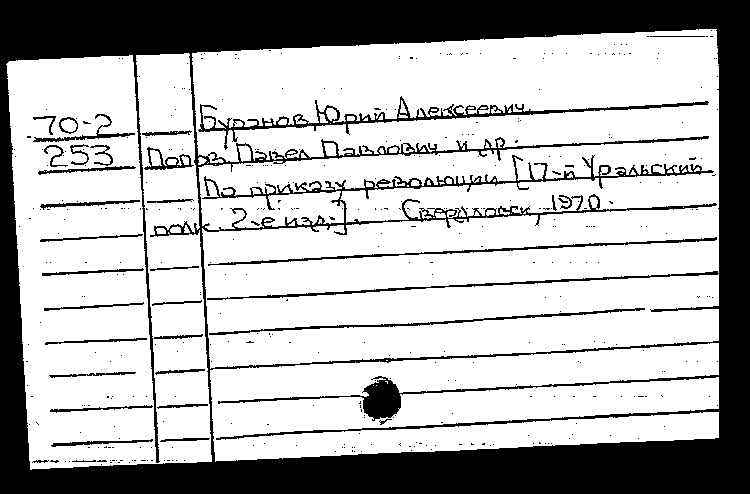 70-2 Буранов, Юрий Алексеевич
253 Попов, Павел Павлович и др.
По приказу революции [17-й Уральский
полк. 2-е изд.]. Свердловск, 1970.